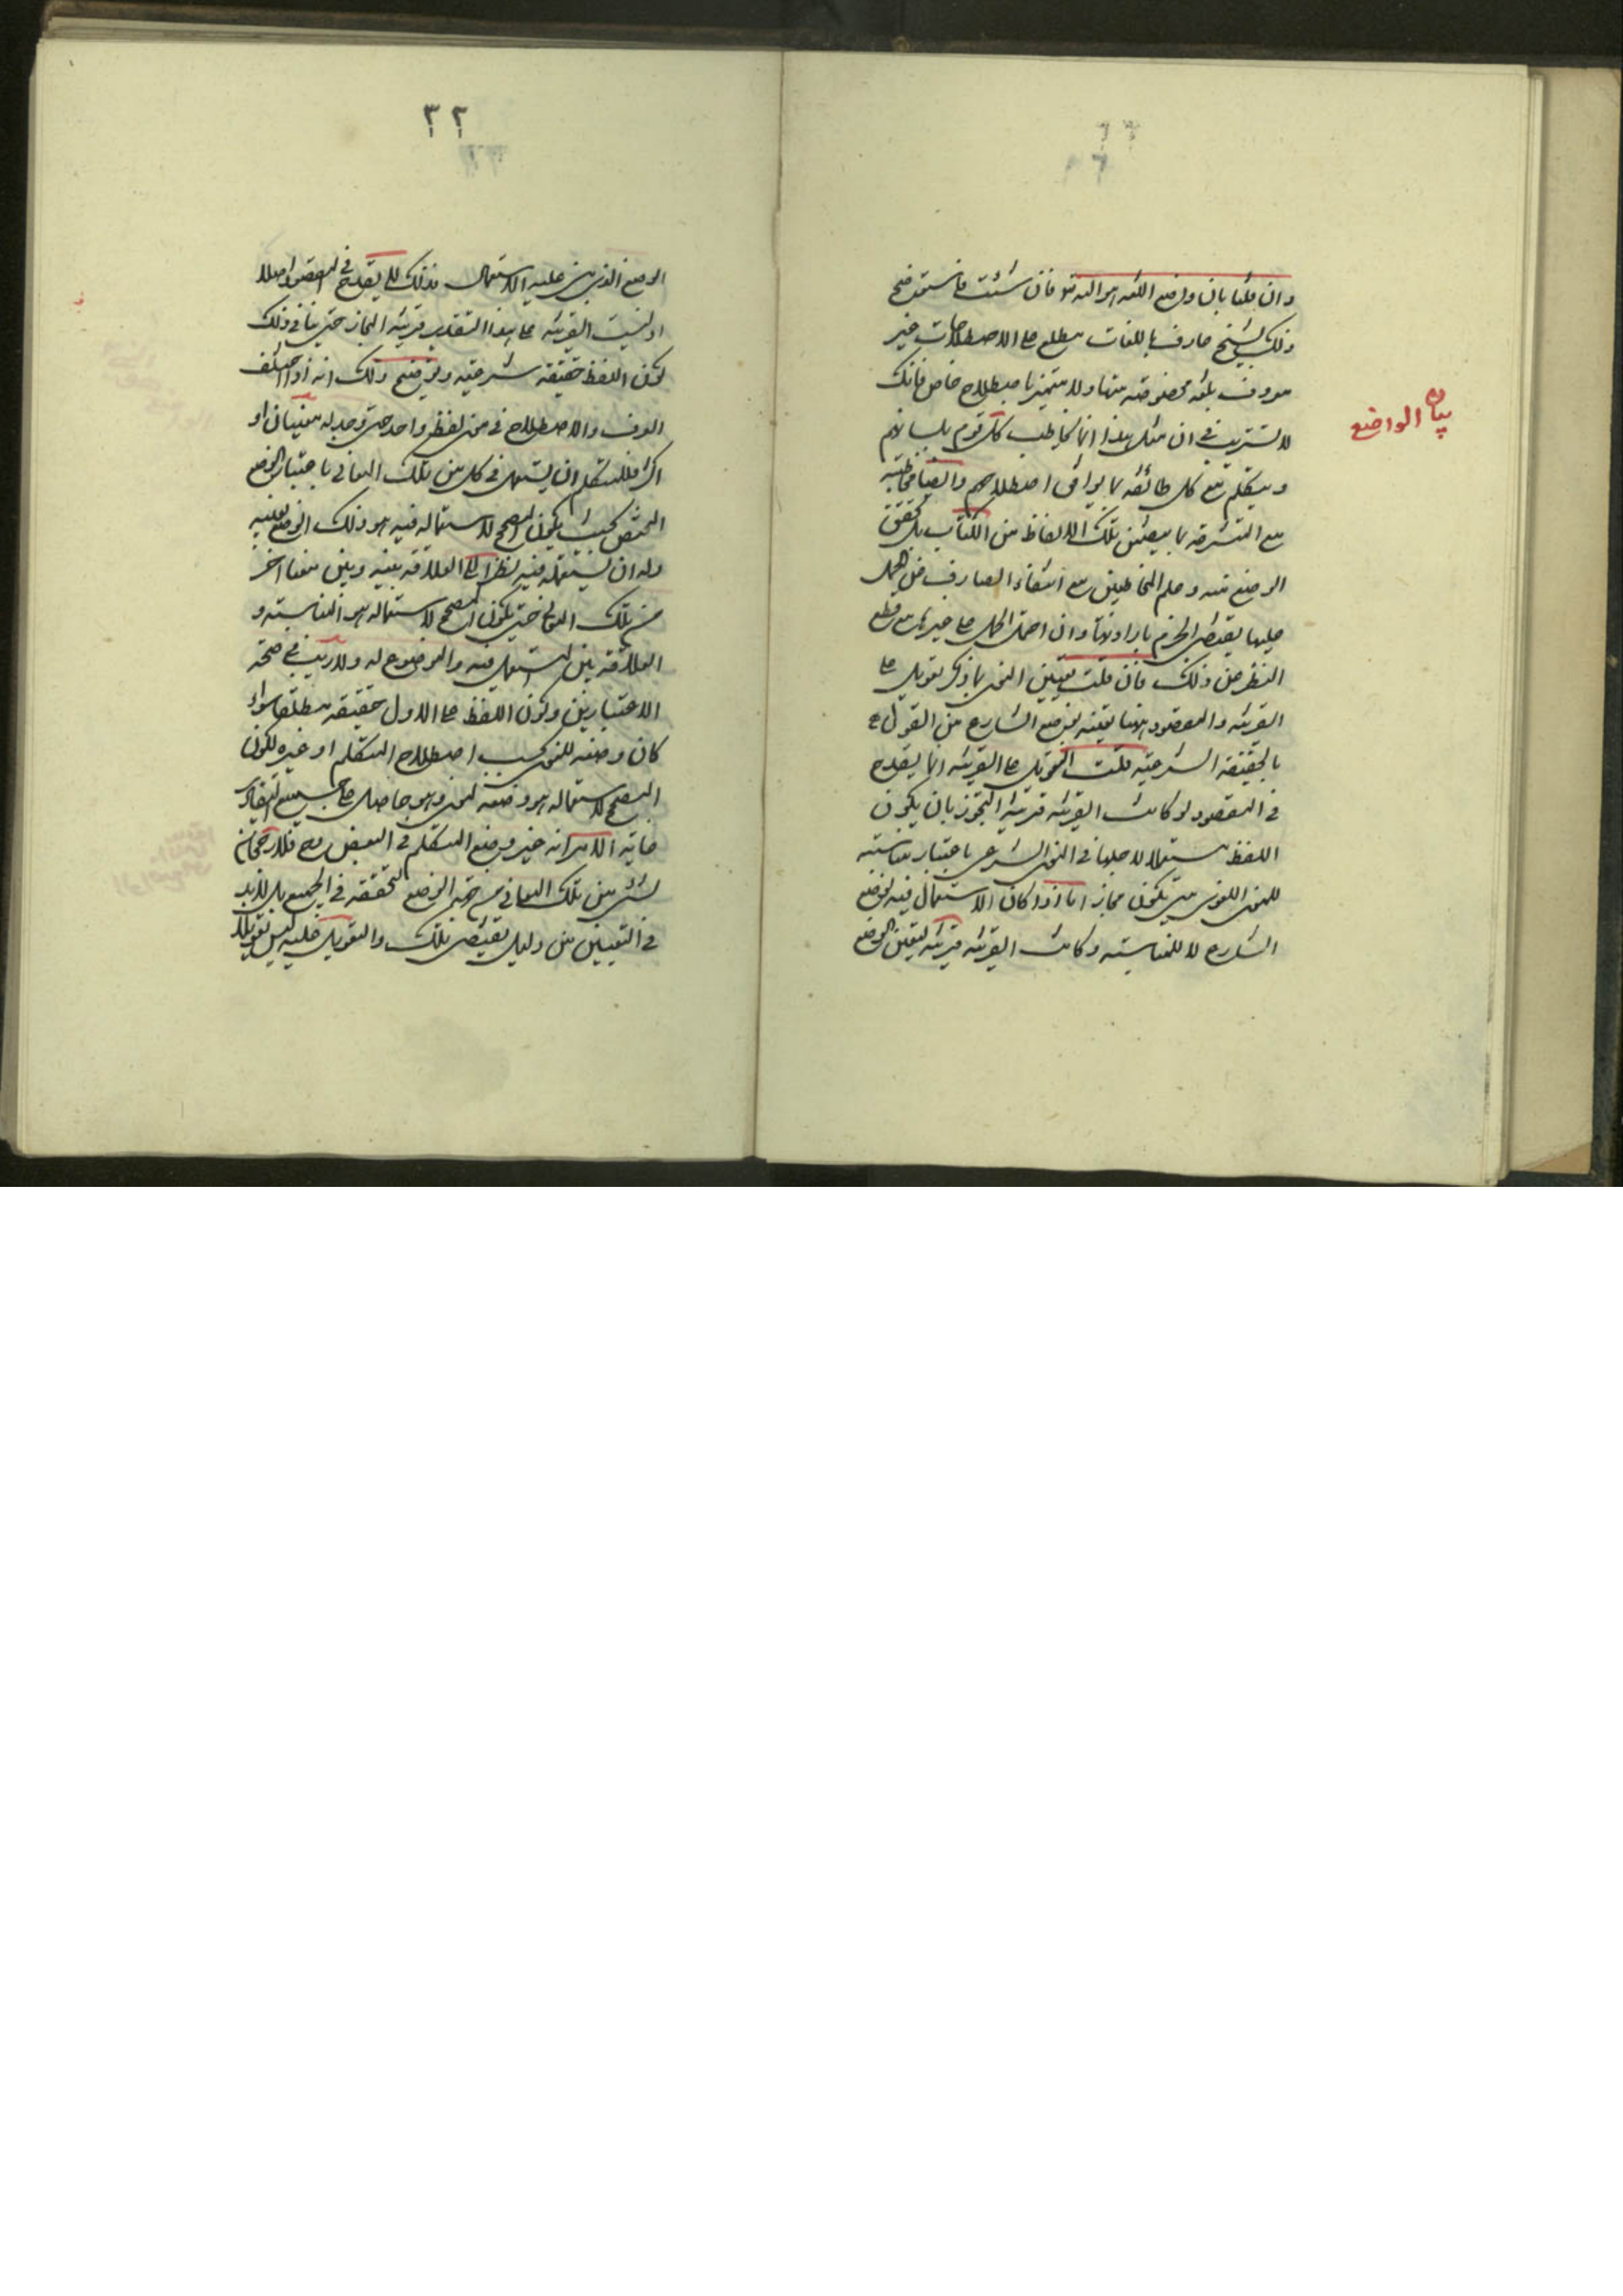 بيان الواضع
وان قلنا بان واضع اللغه هو الله تع فان شئت فاستوضح
ذلك بشخص عارف باللغات مطلع على الاصطلاحات غير
معروف بلغه مخصوصه منها ولا متميز باصطلاح خاص فانك
لا تستريب في ان مثل هذا انما يخاطب كل قوم بلسانهم
ويتكلم مع كل طائفه بما يوافق اصطلاحهم وايضا مخاطبته
مع المتشرعه بما يتضمن تلك الالفاظ من الكتاب بل تحقق
الوضع منه وعلم المخاطبين مع انتفاء الصارف عن الحمل
عليها يقتضى الجزم بارادتها وان احتمل الحمل على غيرها مع قطع
النظر عن ذلك فان قلت تعيين المعنى بما ذكر تعويل على
القرينه والمقصود هنا تعينه بوضع الشارع من القول
بالحقيقه الشرعيه قلت التعويل على القرينه انما يقدح
في المقصود لو كانت القرينه قرينه التجوز بان يكون
اللفظ مستعملا لاجلها في المعنى الشرعى باعتبار مناسبته
للمعنى اللغوى حتى يكون مجازا اما اذا كان الاستعمال فيه لوضع
الشارع لا للمناسبه وكانت القرينه قرينه لتعين الوضع
٣٢
الوضع الذى بنى عليه الاستعمال فذلك لا يقدح في المقصود اصلا
اذ ليست القرينه على هذا التقدير قرينه المجاز حتى ينافى ذلك
كون اللفظ حقيقه شرعيه وتوضيح ذلك انه اذا اختلف
العرف والاصطلاح في معنى لفظ واحد حتى وجد له معنيان او
اكثر فللمتكلم ان يستعمله في كل من تلك المعانى باعتبار الوضع
المختص بحيث يكون المصحح لاستعماله فيه هو ذلك الوضع بعينه
وله ان يستعمله فيه نظرا الى العلاقه بينه وبين معنا اخر
من تلك المعانى حتى يكون المصحح لاستعماله هو المناسبه و
العلاقه بين المستعمل فيه والموضوع له ولا ريب في صحه
الاعتبارين وكون اللفظ على الاول حقيقه مطلقا سواء
كان وضعه للمعنى بحسب اصطلاح المتكلم او غيره لكون
المصحح لاستعماله هو وضعه لمعنى وهو حاصل على جميع التقادير
غايه الامر انه غير وضع المتكلم في البعض وح فلا رجحان
لشئ من تلك المعانى من جهه الوضع لتحققه في الجميع بل لا بد
في التعيين من دليل يقتضى ذلك والتعويل عليه ليس تعويلا